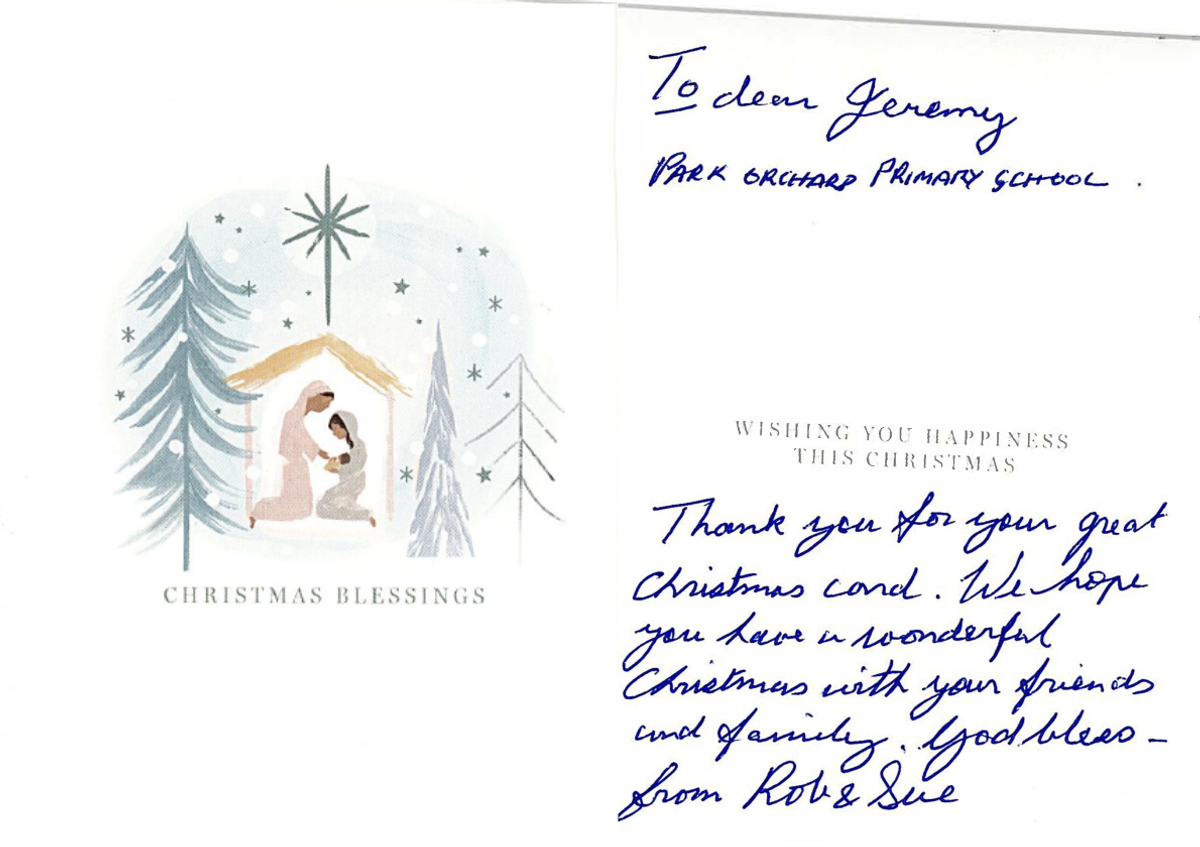 CHRISTMAS BLESSINGS
To dear Jeremy
PARK ORCHARD PRIMARY SCHOOL .
WISHING YOU HAPPINESS
THIS CHRISTMAS
Thank you for your great
Christmas card. We hope
you have a wonderful
Christmas with your friends
and family. God bless -
from Rob & Sue